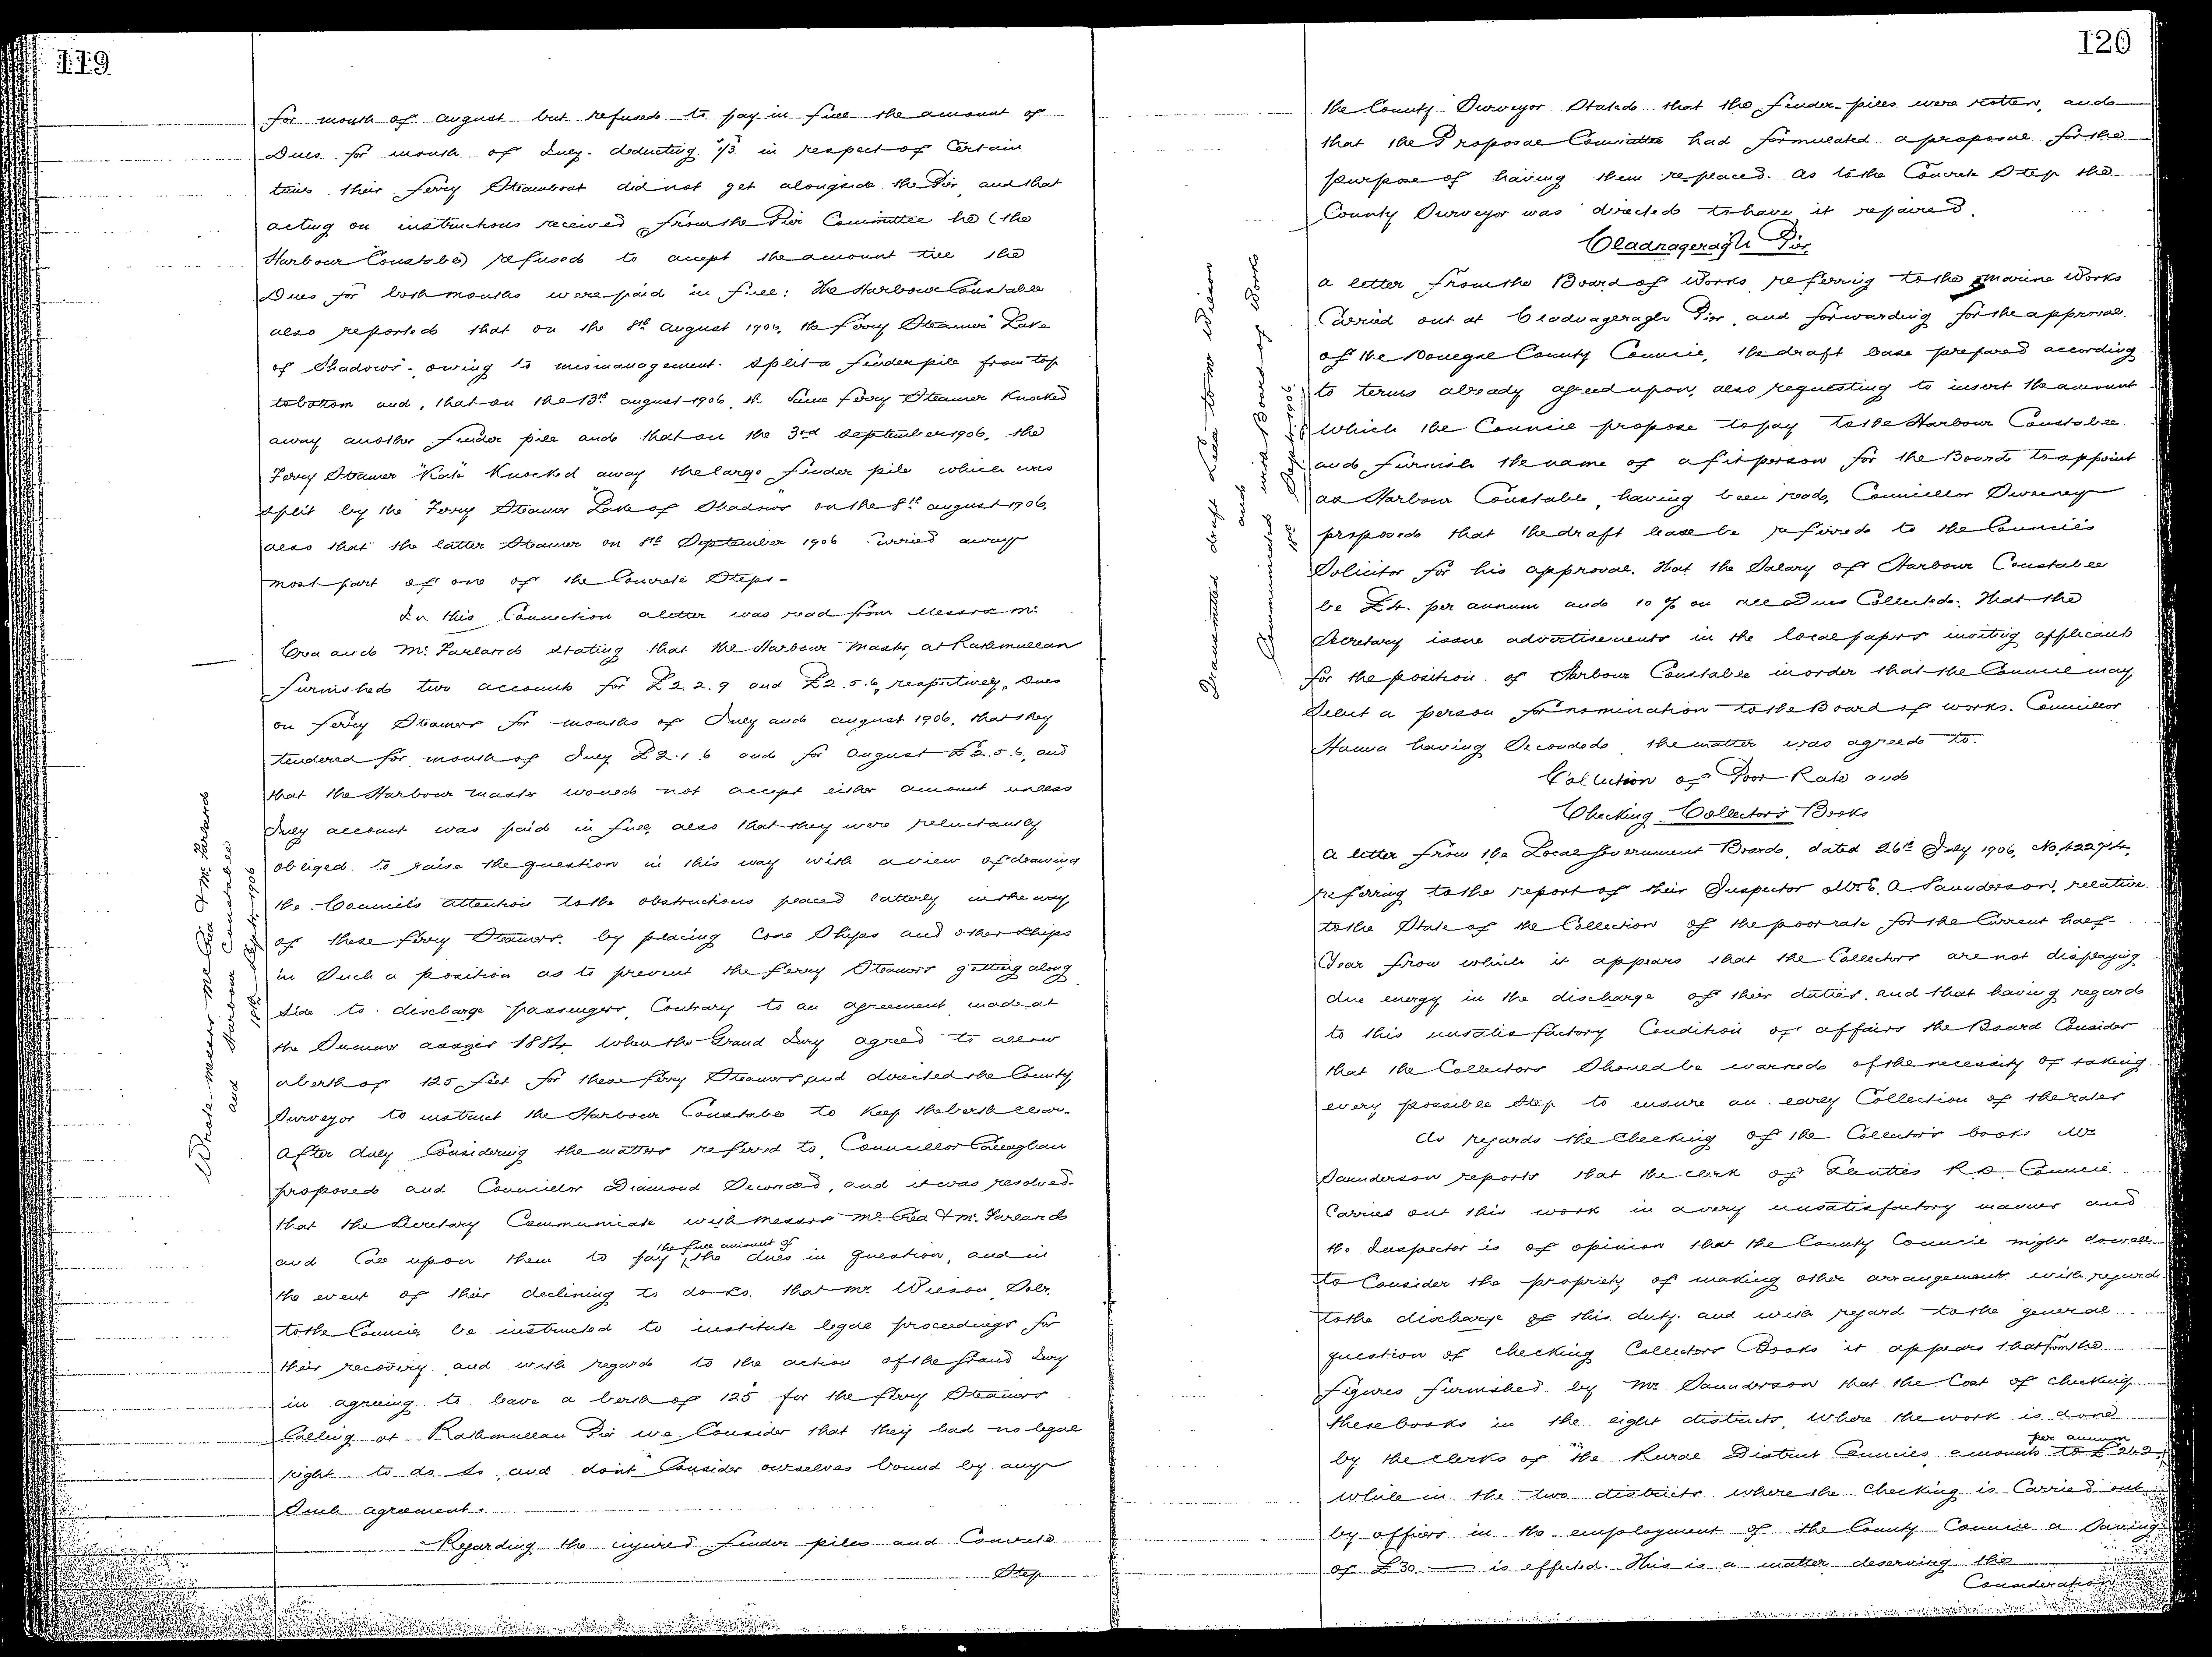 119
for month of August but refused to pay in full the amount of
Dues for month of July - deducting 1/3 in respect of Certain
times their ferry Steamboat did not get alongside the Pier, and that
acting on instructions received from the Pier Committee he (the
Harbour Constable) refused to accept the amount till the
Dues for both months were paid in full: The Harbour Constable
also reported that on the 8th August 1906, the ferry Steamer "Lake
of Shadows" - owing to mismanagement - Split a fender pile from top
to bottom and, that on the 13th August 1906, the Same ferry Steamer Knocked
away another fender pile and that on the 3rd September 1906, the
Ferry Steamer "Kate" Knocked away the large fender pile which was
Split by the Ferry Steamer "Lake of Shadows" on the 8th August 1906,
also that the latter Steamer on 8th September 1906 Carried away
most part of one of the Concrete Steps -
In this Connection a letter was read from Messrs Mc
Crea and Mc Farland stating that the Harbour Master, at Rathmullan
furnished two accounts for £2.2.9 and £2.5.6, respectively, Dues
on ferry Steamers for months of July and August 1906, that they
tendered for month of July £2.1.6 and for August £2.5.6, and
that the Harbour Master would not accept either amount unless
July account was paid in full, also that they were reluctantly
obliged to raise the question in this way with a view of drawing
the Council's attention to the obstructions placed latterly in the way
of these ferry Steamers by placing Coal Ships and other Ships
in Such a position as to prevent the ferry Steamers getting along
Side to discharge passengers, Contrary to an agreement made at
the Summer assizes 1884, when the Grand Jury agreed to allow
a berth of 125 feet for these ferry Steamers and directed the County
Surveyor to instruct the Harbour Constable to Keep the berth clear.
After duly Considering the matters referred to, Councillor Callaghan
proposed and Councillor Diamond Seconded, and it was resolved -
that the Secretary Communicate with Messrs Mc Crea & Mc Farland
and Call upon them to pay the full amount of the dues in question, and in
the event of their declining to do so, that Mr. Wilson, Solr.
to the Council be instructed to institute legal proceedings for
their recovery and with regard to the action of the Grand Jury
in agreeing to leave a berth of 125' for the ferry Steamers
Calling at Rathmullan Pier we Consider that they had no legal
right to do so, and dont Consider ourselves bound by any
Such agreement.
Regarding the injured fender piles and Concrete
Step
Wrote Messrs Mc Crea & Mc Farland
and Harbour Constable
18th Septr. 1906
120
the County Surveyor Stated that the fender-piles were rotten, and
that the Proposal Committee had formulated a proposal for the
purpose of having them replaced. As to the Concrete Step the
County Surveyor was directed to have it repaired.
Cladnageragh Pier
A letter from the Board of Works, referring to the marine Works
Carried out at Cladnageragh Pier, and forwarding for the approval
of the Donegal County Council, the draft lease prepared according
to terms already agreed upon, also requesting to insert the amount
which the Council propose to pay to the Harbour Constable
and furnish the name of a fit person for the Board to appoint
as Harbour Constable, having been read, Councillor Sweeney
proposed that the draft lease be referred to the Council's
Solicitor for his approval. That the Salary of Harbour Constable
be £4. per annum and 10% on all Dues Collected. That the
Secretary issue advertisements in the local papers inviting applicants
for the position of Harbour Constable in order that the Council may
Select a person for nomination to the Board of Works. Councillor
Hanna having Seconded, the matter was agreed to.
Collection of Poor Rate and
Checking Collector's Books
A letter from the Local Government Board, dated 26th July 1906, No. 42274,
referring to the report of their Inspector Mr. E. A. Saunderson, relative
to the State of the Collection of the poor rate for the Current half-
Year from which it appears that the Collectors are not displaying
due energy in the discharge of their duties, and that having regard
to this unsatisfactory Condition of affairs the Board Consider
that the Collectors Should be warned of the necessity of taking
every possible Step to ensure an early Collection of the rates
As regards the Checking of the Collector's books Mr
Saunderson reports that the Clerk of Glenties R.D. Council
Carries out this work in a very unsatisfactory manner and
the Inspector is of opinion that the County Council might do well
to Consider the propriety of making other arrangements with regard
to the discharge of this duty and with regard to the general
question of checking Collectors Books it appears that from the
figures furnished by Mr Saunderson that the Cost of checking
these books in the eight districts, where the work is done
by the Clerks of the Rural District Councils, amounts to £242 per annum,
while in the two districts where the Checking is Carried out
by officers in the employment of the County Council a Saving
of £30 — is effected. This is a matter deserving the
Consideration
Transmitted draft Lease to Mr Wilson
and
Communicated with Board of Works
18th Septr. 1906.